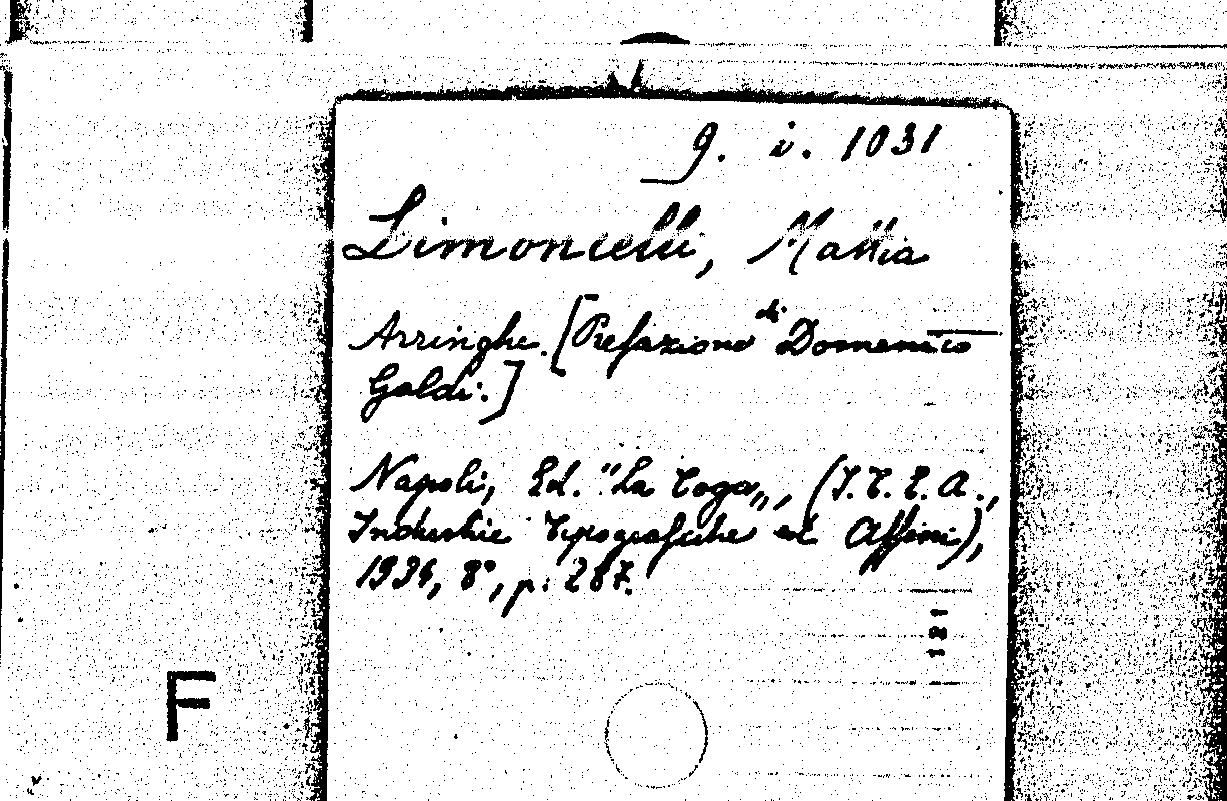 9. i. 1031
Limoncelli, Mattia
Arringhe. [Prefazione di Domenico
Galdi.]
Napoli, Ed. "La Toga„, (I. T. E. A.,
Industrie Tipografiche ed Affini),
8°, p. 287.
F